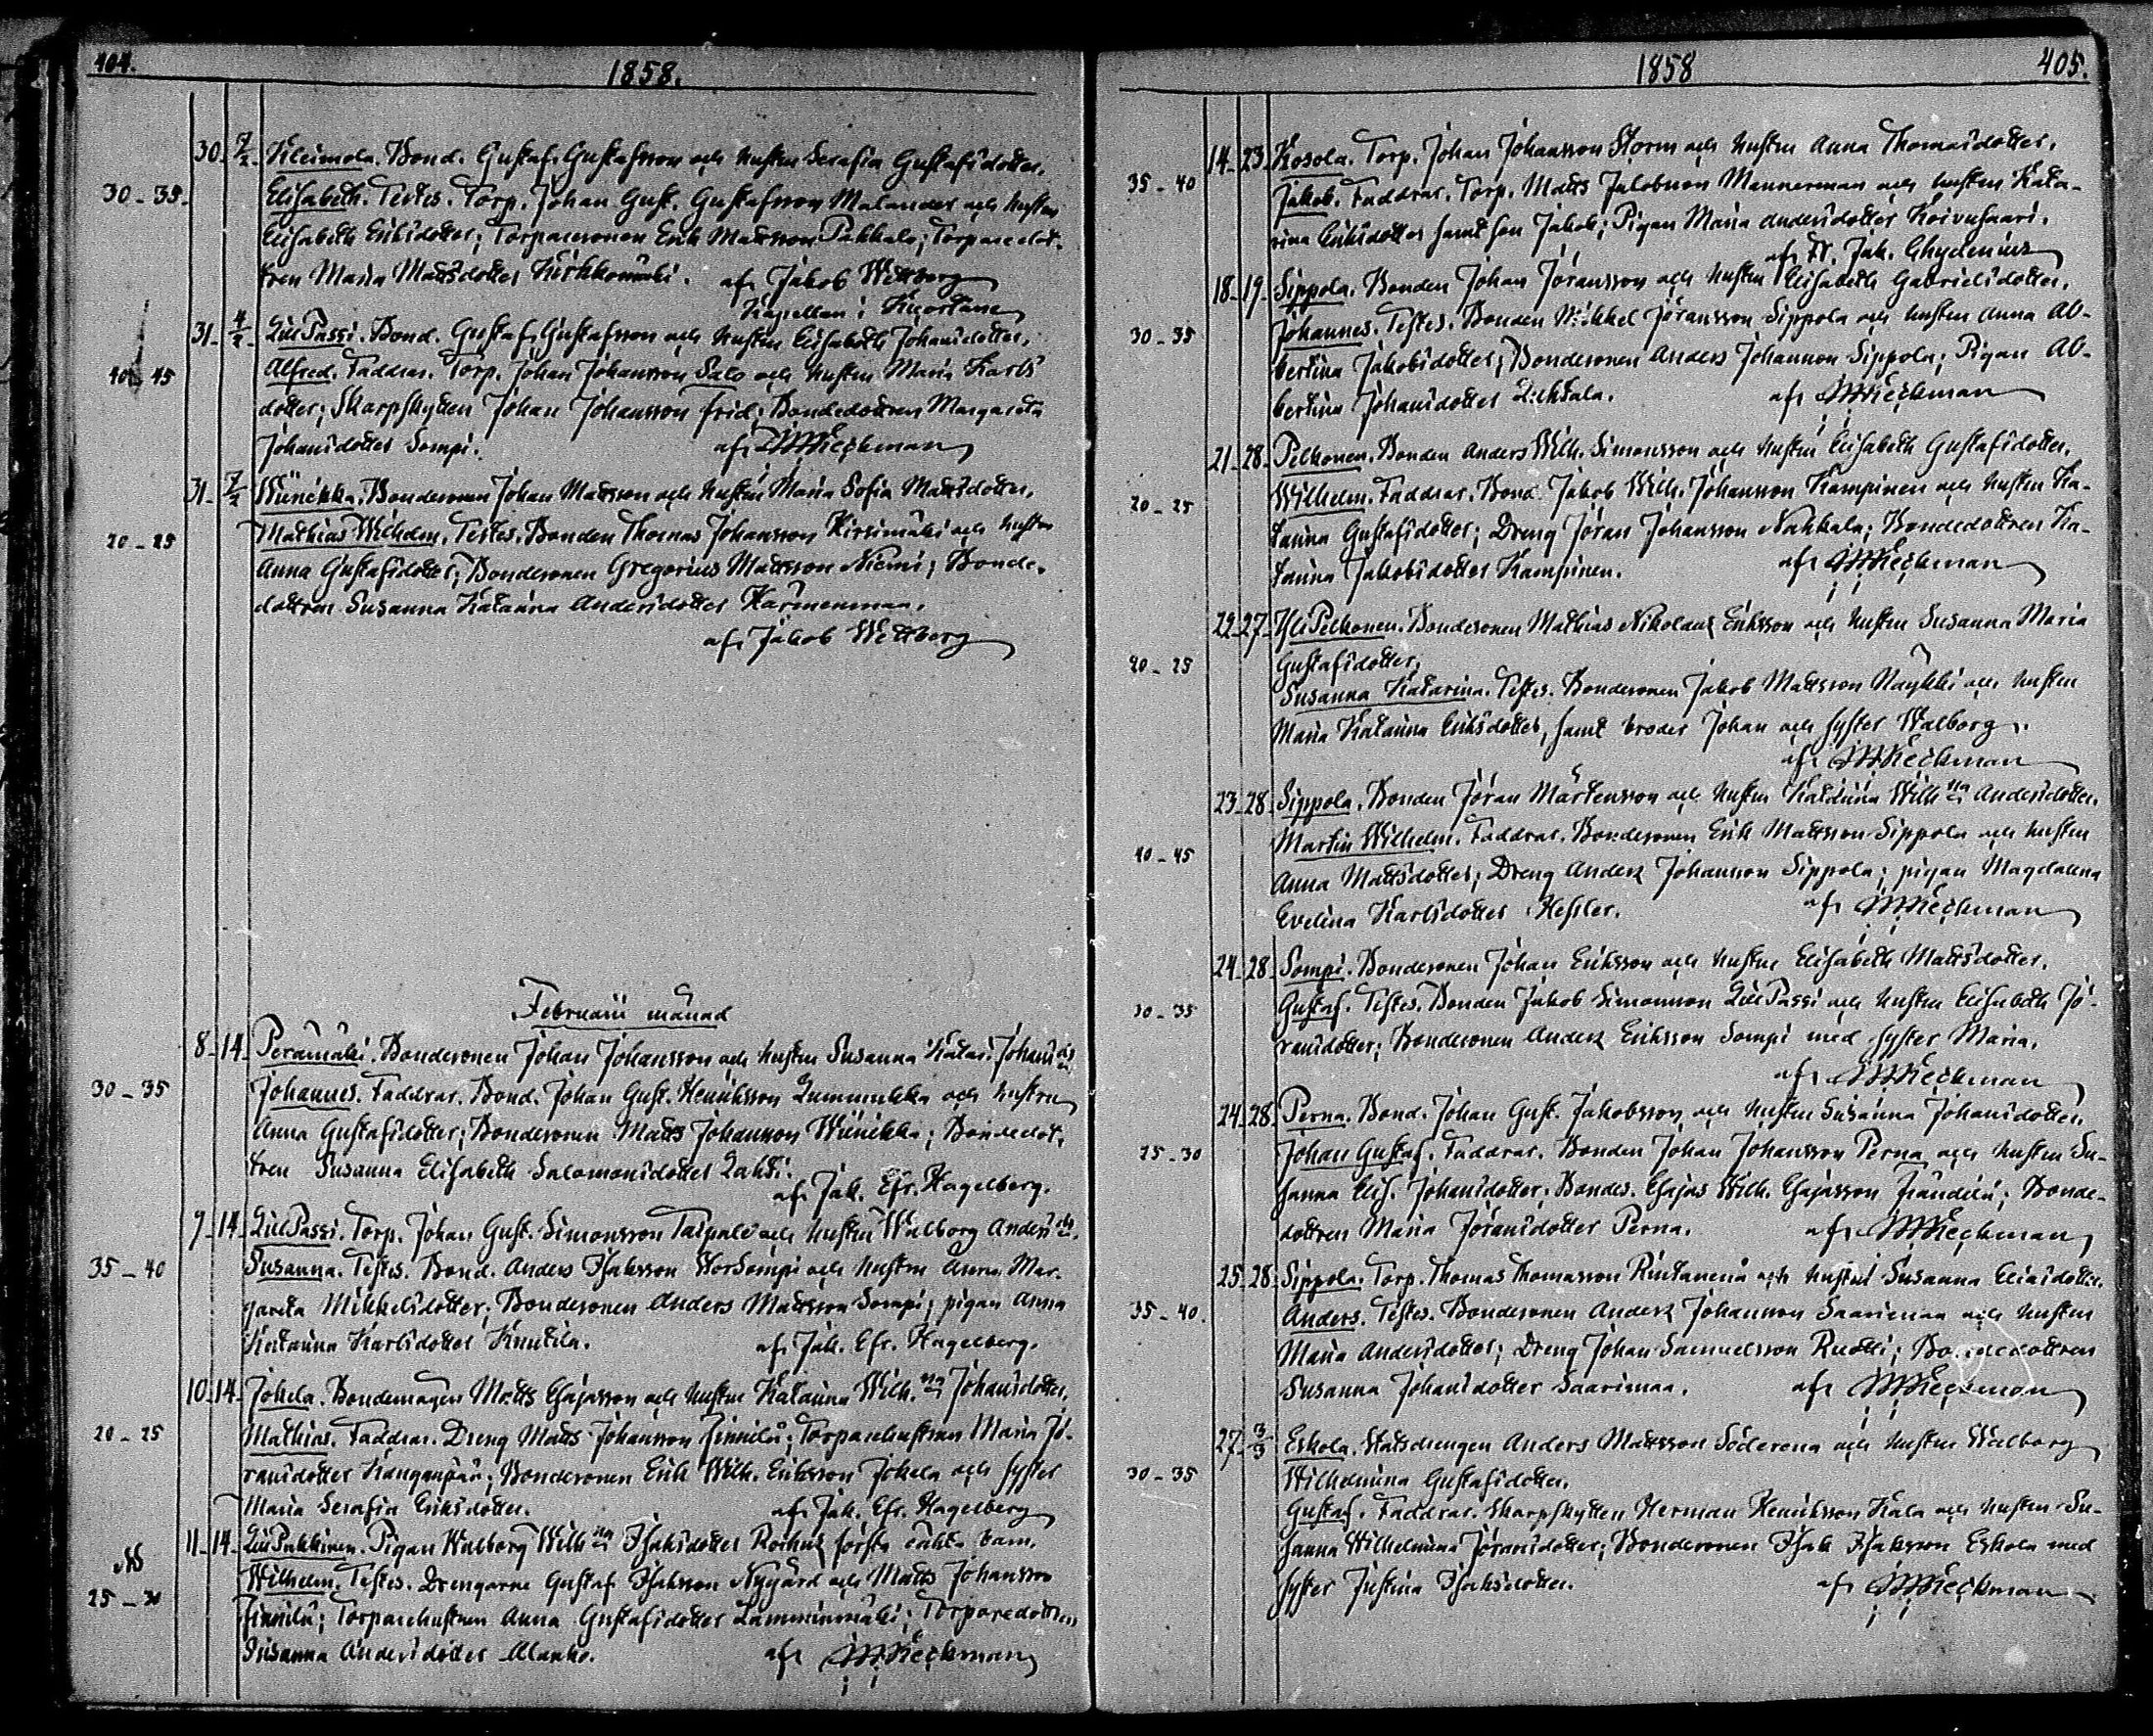 404.
1858.
30. 7/2. Kleimola. Bond. Gustaf Gustafsson och hustru Serafia Gustafsdotter.
30-35. Elisabeth. Testes. Torp. Johan Gust. Gustafsson Malander och hustru
Elisabeth Eriksdotter; Torparesonen Erik Mattsson Pakkala; Torparedot-
tren Maria Mattsdotter Kirkkomäki. af Jakob Wettberg
Kapellan i Kuortane
31. 4/2. Lill Passi. Bond. Gustaf Gustafsson och hustru Elisabeth Johansdotter.
40-45 Alfred. Faddrar. Torp. Johan Johansson Salo och hustru Maria Karls
dotter; Skarpskytten Johan Johansson Frid; Bondedottren Margareta
Johansdotter Sompi. af Keckman
31. 7/2. Wiinikka. Bondesonen Johan Mattsson och hustru Maria Sofia Mattsdotter.
20-25 Mathias Wilhelm. Testes. Bonden Thomas Johansson Kirsimäki och hustru
Anna Gustafsdotter; Bondesonen Gregorius Mattsson Niemi; Bonde-
dottren Susanna Katarina Andersdotter Karmenmaa.
af Jakob Wettberg
Februarii månad
8-14. Perämäki. Bondesonen Johan Johansson och hustru Susanna Katar. Johans
30-35 Johannes. Faddrar. Bond. Johan Gust. Henriksson Lummukka och hustru
Anna Gustafsdotter; Bondesonen Matts Johansson Wiinikka; Bondedot-
tren Susanna Elisabeth Salomonsdotter Lahti.
af Jak. Efr. Hagelberg.
9-14. Lill Passi. Torp. Johan Gust. Simonsson Taipale och hustru Walborg Anders
35-40 Susanna. Testes. Bond. Anders Isaksson StorSompi och hustru Anna Mar-
gareta Mikkelsdotter; Bondesonen Anders Mattsson Sompi; pigan Anna
Katarina Karlsdotter Knutila. af Jak. Efr. Hagelberg.
10-14. Jokela. Bondemågen Matts Esajasson och hustru Katarina Wilh.na Johansdotter.
20-25 Mathias. Faddrar. Dreng Matts Johansson Finnilä; Torparehustrun Maria Jö-
ransdotter Kanganpää; Bondesonen Erik Wilh. Eriksson Jokela och syster
Maria Serafia Eriksdotter. af Jak. Efr. Hagelberg
11-14. Lill Pukkinen. Pigan Walborg Wilhna Isaksdotter första oäkta barn.
25-30 Wilhelm. Testes. Drengarne Gustaf Isaksson Nygård och Matts Johansson
Finnilä; Torparehustrun Anna Gustafsdotter Lamminmäki; Torparedottren
Susanna Andersdotter Alanko. af Keckman
1858 405.
14-23. Kosola. Torp. Johan Johansson Storm och hustru Anna Thomasdotter.
35-40 Jakob. Faddrar. Torp. Matts Jakobsson Mannerman och hustru Kata-
rina Eriksdotter samt son Jakob; Pigan Maria Andersdotter Koivusaari.
af Fr. Jak. Chydenius
18-19. Sippola. Bonden Johan Jöransson och hustru Elisabeth Gabrielsdotter.
30-35 Johannes. Testes. Bonden Mikkel Jöransson Sippola och hustru Anna Al-
bertina Jakobsdotter; Bondesonen Anders Johansson Sippola; Pigan Al-
bertina Johansdotter Zihtala. af Keckman
21-28. Pelkonen. Bonden Anders Wilh. Simonsson och hustru Elisabeth Gustafsdotter.
20-25 Wilhelm. Faddrar. Bond. Jakob Wilh. Johansson Kampinen och hustru Ka-
tarina Gustafsdotter; Dreng Jöran Johansson Nahkala; Bondedottren Ka-
tarina Jakobsdotter Kampinen. af Keckman
22-27. Yli Pelkonen. Bondesonen Mathias Nikolaus Eriksson och hustru Susanna Maria
20-25 Gustafsdotter.
Susanna Katarina. Testes. Bondesonen Jakob Mattsson Näykki och hustru
Maria Katarina Eriksdotter, samt broder Johan och syster Walborg.
af Keckman
23-28. Sippola. Bonden Jöran Mårtensson och hustru Katarina Wilhna Andersdotter.
40-45 Martin Wilhelm. Faddrar. Bondesonen Erik Mattsson Sippola och hustru
Anna Mattsdotter; Dreng Anders Johansson Sippola; pigan Magdalena
Evelina Karlsdotter Hesler. af Keckman
24-28. Sompi. Bondesonen Johan Eriksson och hustru Elisabeth Mattsdotter.
30-35 Gustaf. Testes. Bonden Jakob Simonsson Lill Passi och hustru Elisabeth Jö-
ransdotter; Bondesonen Anders Eriksson Sompi med syster Maria.
af Keckman
24-28. Perna. Bond. Johan Gust. Jakobsson och hustru Susanna Johansdotter.
25-30 Johan Gustaf. Faddrar. Bonden Johan Johansson Perna och hustru Su-
sanna Elis. Johansdotter; Bondes. Esajas Wilh. Esajasson Frändilä; Bonde-
dottren Maria Jöransdotter Perna. af Keckman
25-28. Sippola. Torp. Thomas Thomasson Rintaneva och hustru Susanna Eliasdotter.
35-40. Anders. Testes. Bondesonen Anders Johansson Saarimaa och hustru
Maria Andersdotter; Dreng Johan Samuelsson Ruotti; Bondedottren
Susanna Johansdotter Saarimaa. af Keckman
27-3/3 Eskola. Statsdrengen Anders Mattsson Söderena och hustru Walborg
30-35 Wilhelmina Gustafsdotter.
Gustaf. Faddrar. Skarpskytten Herman Henriksson Kala och hustru Su-
sanna Wilhelmina Jöransdotter; Bondesonen Isak Isaksson Eskola med
syster Justina Isaksdotter. af Keckman